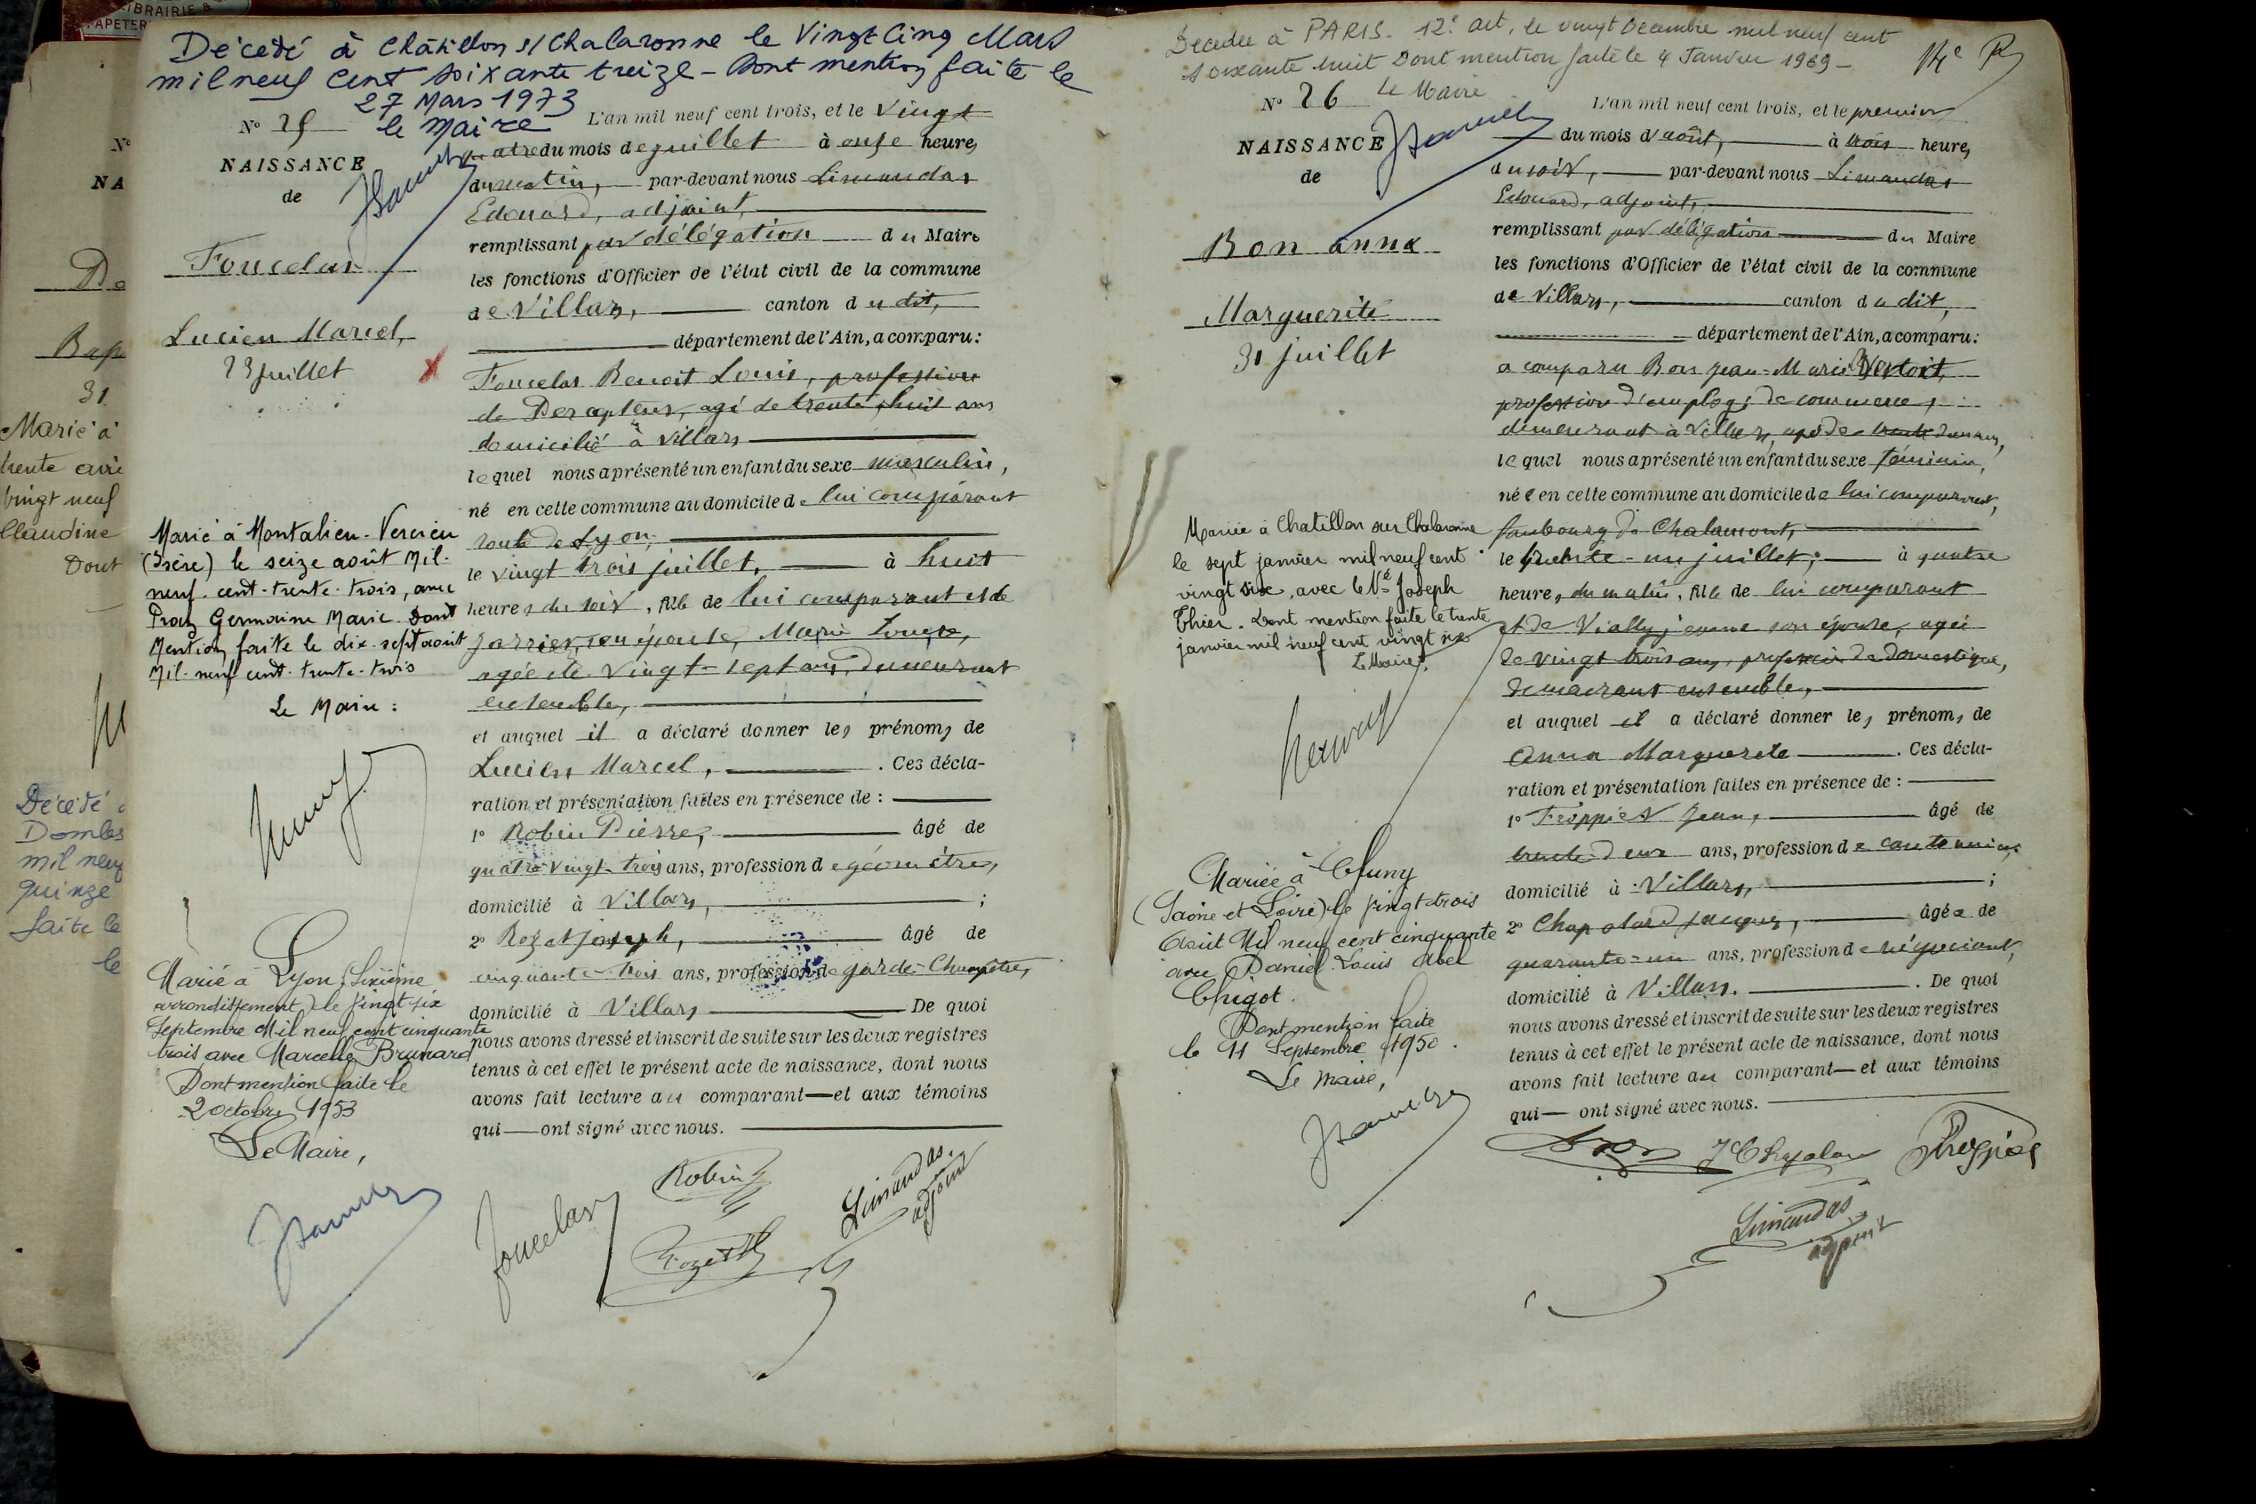 LIBRAIRIE &
PAPETER
Nº
NA
31
Marié à
trente
vingt neuf
Claudine
Dont
Décédé
Dombes
mil neuf
quinze
faite le
le
Décédé à Châtillon s/ Chalaronne le Vingt Cinq Mars
mil neuf Cent soixante treize - Dont mention faite le
27 Mars 1973
le Maire
Nº 25
NAISSANCE
de
Foucelas
Lucien Marcel,
23 juillet
L'an mil neuf cent trois, et le vingt
quatre du mois de juillet à onze heures
du matin, par-devant nous Limandas
Edouard, adjoint,
remplissant par délégation du Maire
les fonctions d'Officier de l'état civil de la commune
de Villars, canton du dit,
département de l'Ain, a comparu:
Foucelas Benoit Louis, profession
de Percepteur, agé de trente huit ans
domicilié à Villars
lequel nous a présenté un enfant du sexe masculin,
né en cette commune au domicile de lui comparant
route de Lyon,
le vingt trois juillet, à huit
heures du soir, fils de lui comparant et de
son épouse, Marie
agée de vingt-sept ans demeurant
ensemble,
et auquel il a déclaré donner les prénoms de
Lucien Marcel, . Ces décla-
ration et présentation faites en présence de :
1º Robin Pierre, âgé de
quatre vingt-trois ans, profession de géomètre,
domicilié à Villars, ;
2º Rozet Joseph, âgé de
cinquante-trois ans, profession de garde-Champêtre,
domicilié à Villars De quoi
nous avons dressé et inscrit de suite sur les deux registres
tenus à cet effet le présent acte de naissance, dont nous
avons fait lecture au comparant et aux témoins
qui ont signé avec nous.
Marié à Montalieu-Vercieu
(Isère) le seize août Mil-
neuf-cent-trente-trois, avec
Germaine Marie. Dont
Mention faite le dix-sept août
Mil-neuf cent-trente-trois
Le Maire :
Marié à Lyon (Sixième
arrondissement) le vingt six
Septembre Mil neuf cent cinquante
trois avec Marcelle Brunard
Dont mention faite le
2 octobre 1953
Le Maire,
Foucelas
Robin
Rozet
Limandas
adjoint
Décédée à PARIS. 12e art, le vingt Décembre mil neuf cent
soixante huit Dont mention faite le 4 Janvier 1969 -
Le Maire
Nº 26
NAISSANCE
de
Bon Anna
Marguerite
31 juillet
L'an mil neuf cent trois, et le premier
du mois d'août, à trois heures
du soir, par-devant nous Limandas
Edouard, adjoint,
remplissant par délégation du Maire
les fonctions d'Officier de l'état civil de la commune
de Villars, canton du dit,
département de l'Ain, a comparu:
a comparu Bon Jean-Marie
profession d'employé de commerce,
demeurant à Villars, agé de trente deux ans,
lequel nous a présenté un enfant du sexe féminin,
née en cette commune au domicile de lui comparant,
faubourg de Chalamont,
le trente-un juillet, à quatre
heures du matin, fille de lui comparant
et de Vially, son épouse, agée
de vingt trois ans, profession de domestique,
demeurant ensemble,
et auquel il a déclaré donner les prénoms de
Anna Marguerite . Ces décla-
ration et présentation faites en présence de :
1º Jean, âgé de
trente deux ans, profession de cantonnier
domicilié à Villars, ;
2º Chapolard Jacques, âgé de
quarante-un ans, profession de négociant,
domicilié à Villars. . De quoi
nous avons dressé et inscrit de suite sur les deux registres
tenus à cet effet le présent acte de naissance, dont nous
avons fait lecture au comparant et aux témoins
qui ont signé avec nous.
Mariée à Chatillon sur Chalaronne
le sept janvier mil neuf cent
vingt six, avec Joseph
Thier. Dont mention faite le trente
janvier mil neuf cent vingt six
Le Maire.
Mariée à Cluny
(Saône et Loire) le vingt trois
Août Mil neuf cent cinquante
avec Daniel Louis Abel
Chigot.
Dont mention faite
le 11 Septembre 1950.
Le Maire,
Bon
Limandas
adjoint